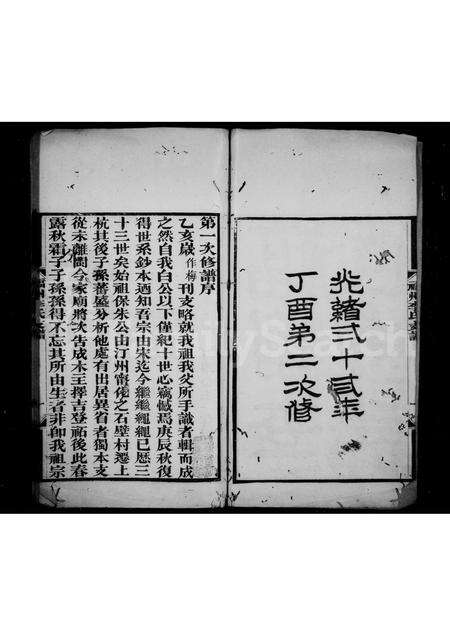 光緒弍十弎年
丁酉第二次修
第一次修譜序
乙亥嵗作梅刊支略就我祖我父所手識者輯而成
之然自我白公以下僅紀十世心竊憾焉庚辰秋復
得世系鈔本迺知吾宗由宋迄今繼繼繩繩已歷三
十三世矣始祖保朱公由汀州甯化之石壁村遷上
杭其後子孫蕃盛分析他處有出居異省者獨本支
從未離閩今家廟將次告成木主擇吉登祏後此春
露秋霜子子孫孫得不忘其所由生者非卽我祖宗